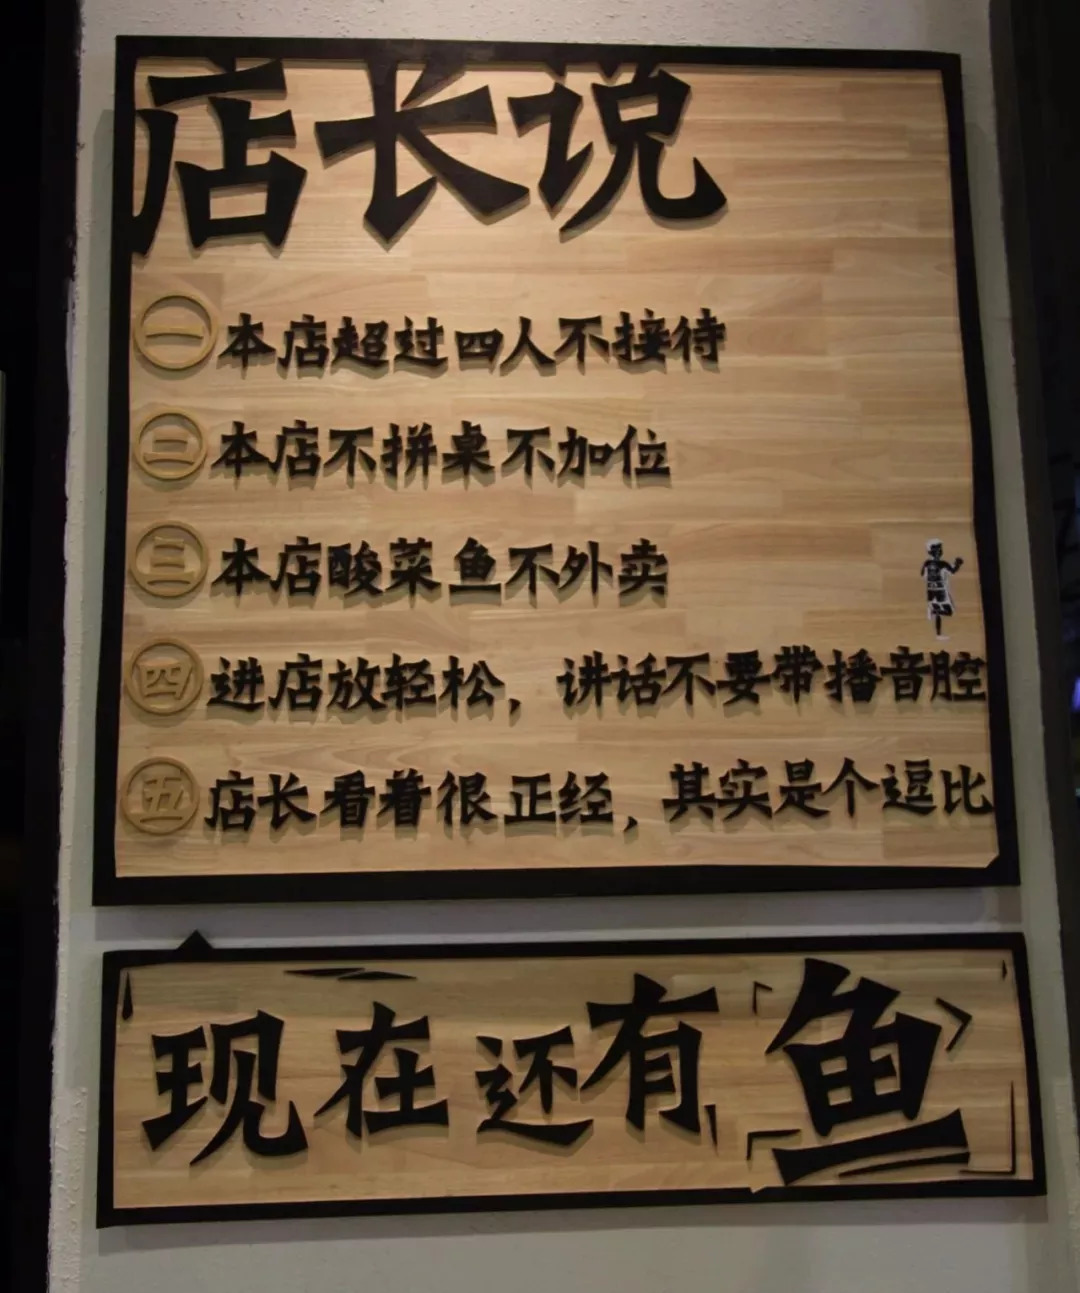 店长说
一 本店超过四人不接待
二 本店不拼桌不加位
三 本店酸菜鱼不外卖
四 进店放轻松，讲话不要带播音腔
五 店长看着很正经，其实是个逗比
现在还有鱼